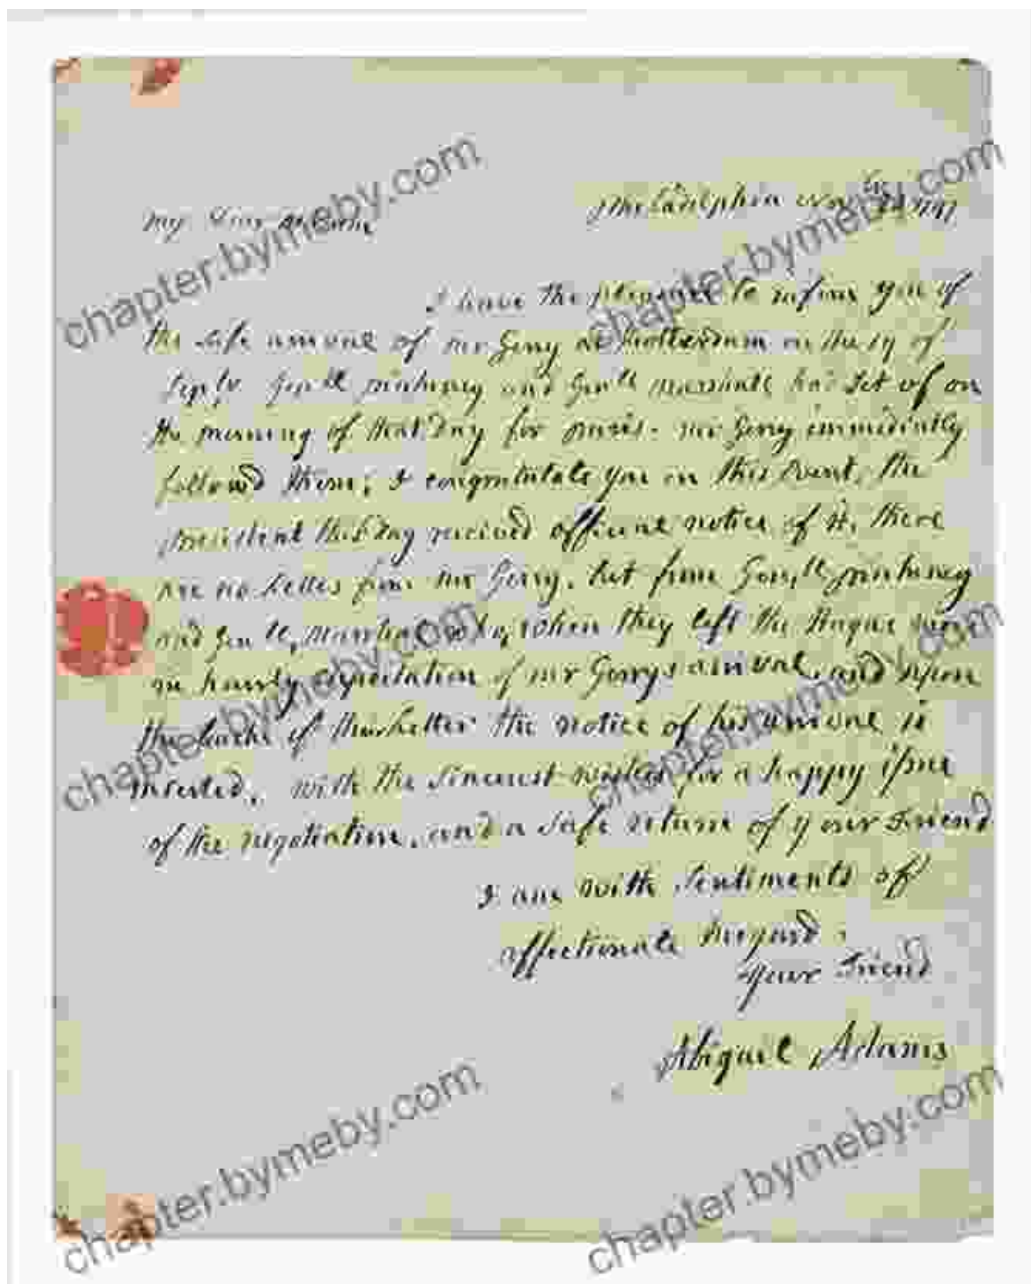 My Dear Madam
Philadelphia Nov
I have the pleasure to inform you of
the safe arrival of mr Gerry at Rotterdam on the 17 of
Sepbr Genll pinkney and Genll marshall had set of on
the morning of that day for paris. mr Gerry immediately
followd them; I congratulate you on this event, the
president this day received official notice of it. there
are no Letters from mr Gerry, but from Genll pinkney
and Genll, marshal who, when they left the Hague were
in hourly expectation of mr Gerrys arrival, and upon
the back of their Letter the notice of his arrival is
inserted, with the sincerest wishes for a happy issue
of the negotiation, and a safe return of your Friend
I am with Sentiments of
affectionate Regard
your Friend
Abigail Adams
chapter.bymeby.com
chapter.bymeby.com
chapter.bymeby.com
chapter.bymeby.com
chapter.bymeby.com
chapter.bymeby.com